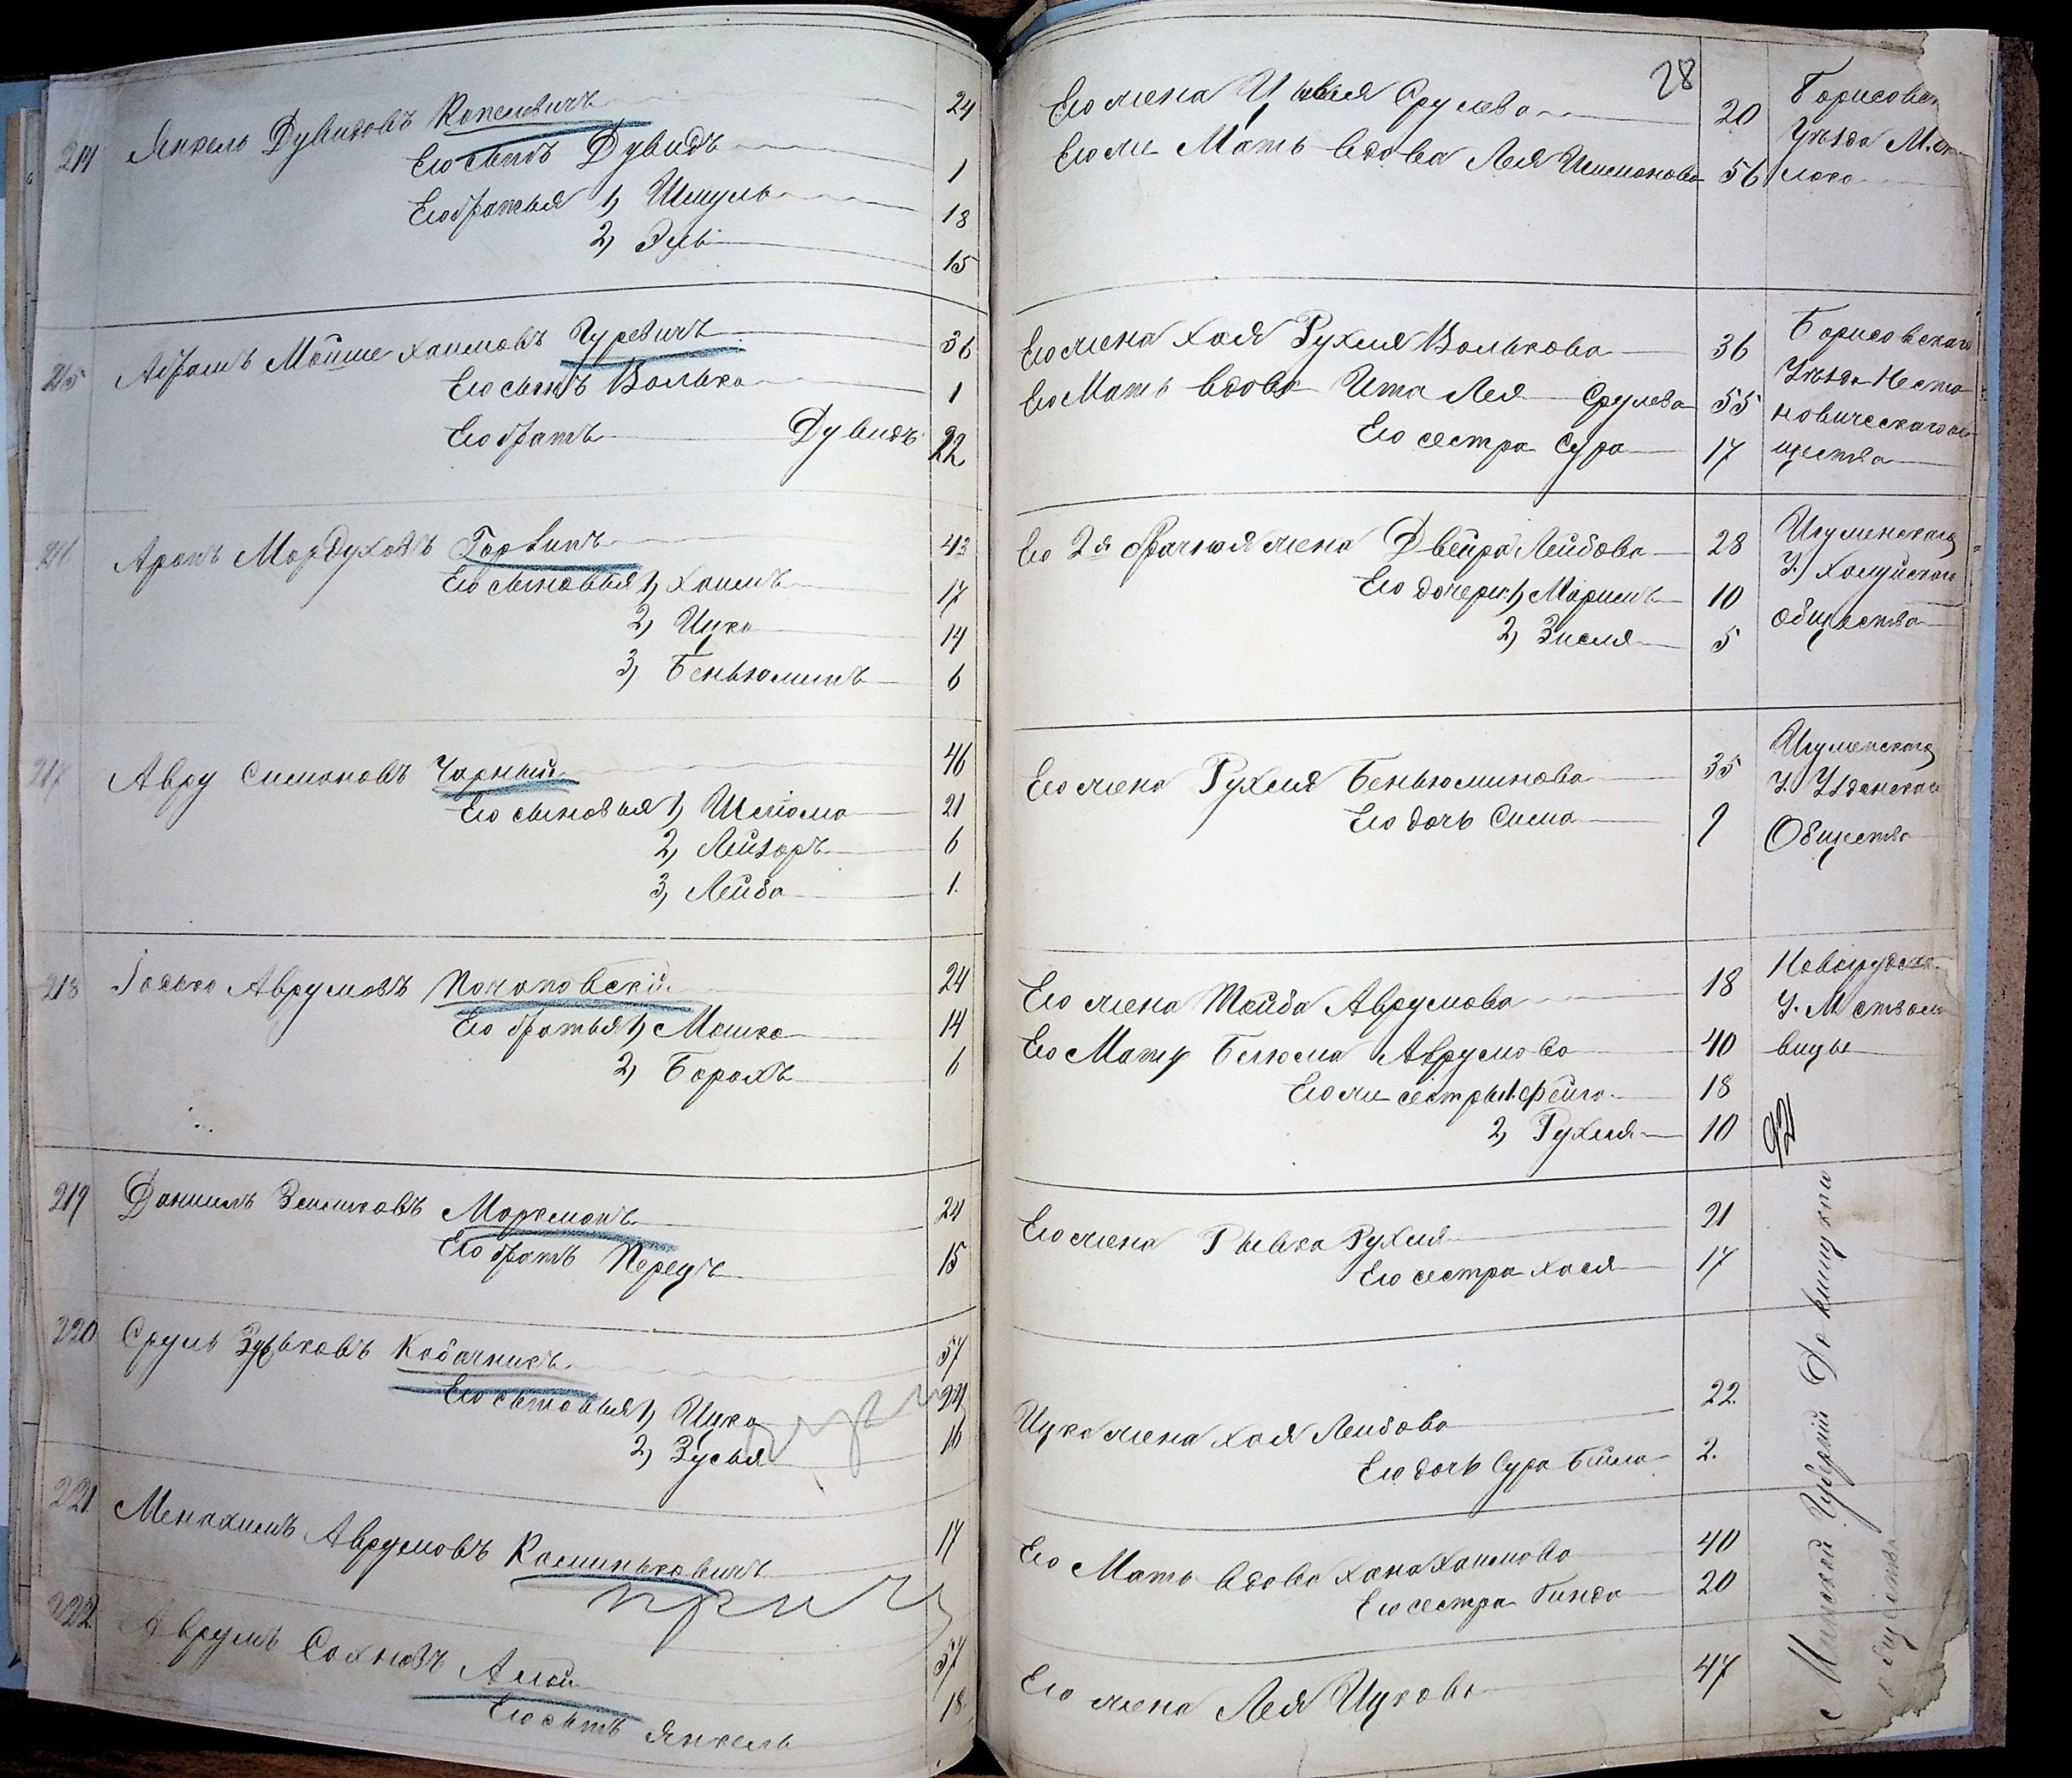 214 Янкель Дувидовъ Копелевичъ 24
Его сынъ Дувидъ 1
Его братья 1, Шмуль 18
2, Эль 15
215 Абрамъ Мойше Хаимовъ Гуревичъ 36
Его сынъ Волько 1
Его братъ Дувидъ 22
216 Аронъ Мордуховъ Горвицъ 43
Его сыновья 1, Хаимъ 17
2, Ицко 14
3, Беньюминъ 6
217 Авру Симоновъ Чарный 46
Его сыновья 1, Шліома 21
2, Лейзоръ 6
3, Лейба 1.
218 Іосько Аврумовъ 24
Его братья 1, Мошко 14
2, Борохъ 6
219 Данишль Зеликовъ Моркманъ 24
Его братъ Перецъ 15
220 Сруль Зуськовъ Кабачникъ 57
Его сыновья 1, Ицко 24
2, Зусья 16
221. Менахимъ Аврумовъ Каминьковичъ 17
222. Аврумъ Сахновъ 57
Его сынъ Янкель 18
28
Его жена Цивья Срулева 20 Борисовск
Его же Мать вдова Лея Шимонова 56 Уѣзда
Его жена Хая Рухля Волькова 36 Борисовскаго
Его Мать вдова Ита Лея Срулева 55 Уѣзда Неста
новическаго об
Его сестра Сура 17 щества
Его 2я брачная жена Двейра Лейбова 28 Игуменскаго
Его дочери: 1, Маримъ 10 У. Холуйскаго
2, Зисля 5 Общества
Его жена Рухля Беньюминова 35 Игуменскаго
У. Узденскаго
Его дочь Сима 9 Общества
Его жена Тойба Аврумова 18 Новогрудска
У. М Ствол
Его Мать Блюма Аврумова 40 вицы
Его же сестры 1. Фейга 18
2, Рухля 10
Его жена Рывка Рухля 21
Его сестра Хася 17
Ицко жена Хая Лейбова 22.
Его дочь Сура Бейла 2.
Его Мать вдова Хана Хаимова 40
Его сестра Гинда 20
Его жена Лея Ицкова 47
Минской Губерній Докшицкаго
общества